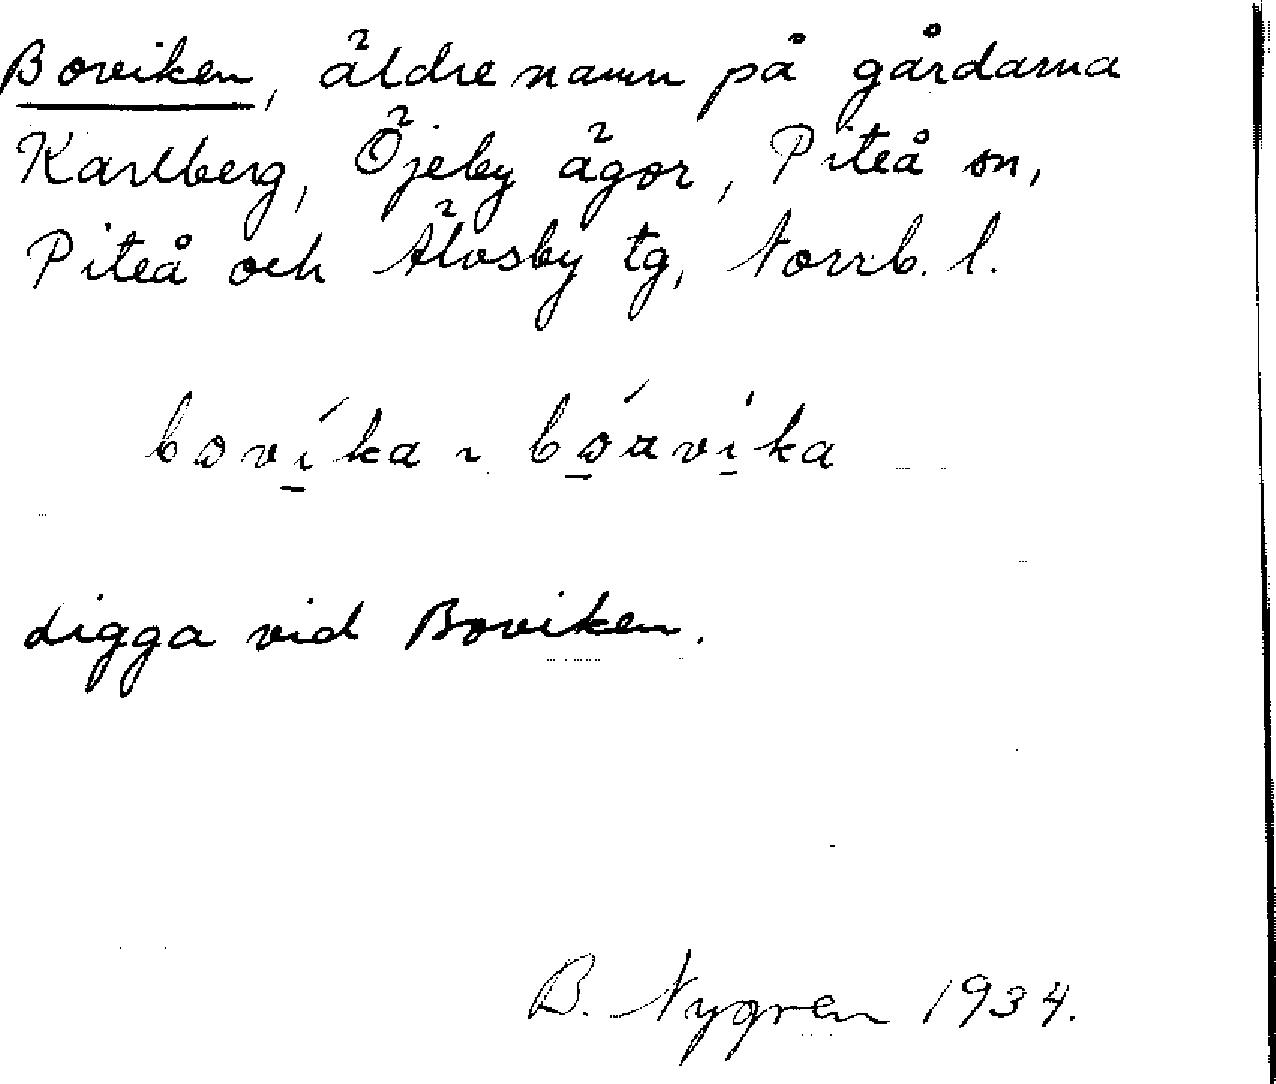 Boviken, äldre namn på gårdarna
Karlberg, Öjeby ägor, Piteå sn,
Piteå och Älvsby tg, Norrb. l.
bovíka ~ bóavíka
ligga vid Boviken.
B. Nygren 1934.